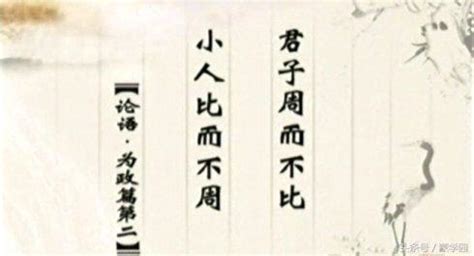 君子周而不比
小人比而不周
【论语·为政篇第二】
头条号/蒙学园